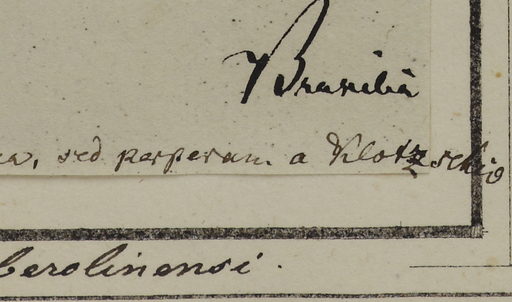 Brasiliâ
sed perperam a Klotzschio
berolinensi.